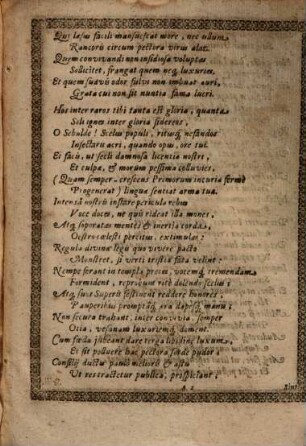 Qui læsus facili mansuescat more, nec ullum
Rancoris circum pectora virus alat.
Quem convivandi non insidiosa voluptas
Sollicitet, frangat quem neq; luxuries,
Et quem suavis odor fulvi non imbuat auri,
Grata cui non sit nuntia fama lucri.
Hos inter raros tibi tanta est gloria, quanta
Sili ignes inter gloria sidereos,
O Sebalde! Scelus populi, ritusq; nefandos
Insectaris acri, quando opus, ore tui.
Et facis, ut secli damnosa licentia nostri,
Et culpæ, & morum pessima colluvies,
(Quam semper crescens Primorum incuria ferme
Progenerat) linguæ sentiat arma tuæ.
Intensa nostris instare pericula rebus
Voce doces, ne quis rideat illa mones,
Atq; soporatas mentes & inertia corda,
Oestro cœlesti percitus, exstimulas:
Regula divinæ legis quo vivere pacto
Monstret, si verti tristia fata velint:
Nempe ferant in templa preces, vocemq; tremendam
Formident, reprobum vitæ docendo scelus;
Atq; suos Superis festinent reddere honores,
Pauperibus promptas, æra dapesq; manu;
Non secura trahant, inter convivia, semper
Otia, vesanam luxuriemq; doment.
Cum fœda jubeant dare terga libidine luxum,
Et sit polluere hac pectora fœde pudor:
Consilii ductu pauli melioris & astu
Ut restractetur publica, prospiciant,
A 2
Sint